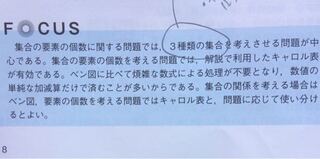 FOCUS
集合の要素の個数に関する問題では,3種類の集合を考えさせる問題が中
心である。集合の要素の個数を考える問題では,解説で利用したキャロル表
が有効である。ベン図に比べて煩雑な数式による処理が不要となり,数値の
単純な加減算だけで済むことが多いからである。集合の関係を考える場合は
ベン図,要素の個数を考える問題ではキャロル表と,問題に応じて使い分け
るとよい。
8